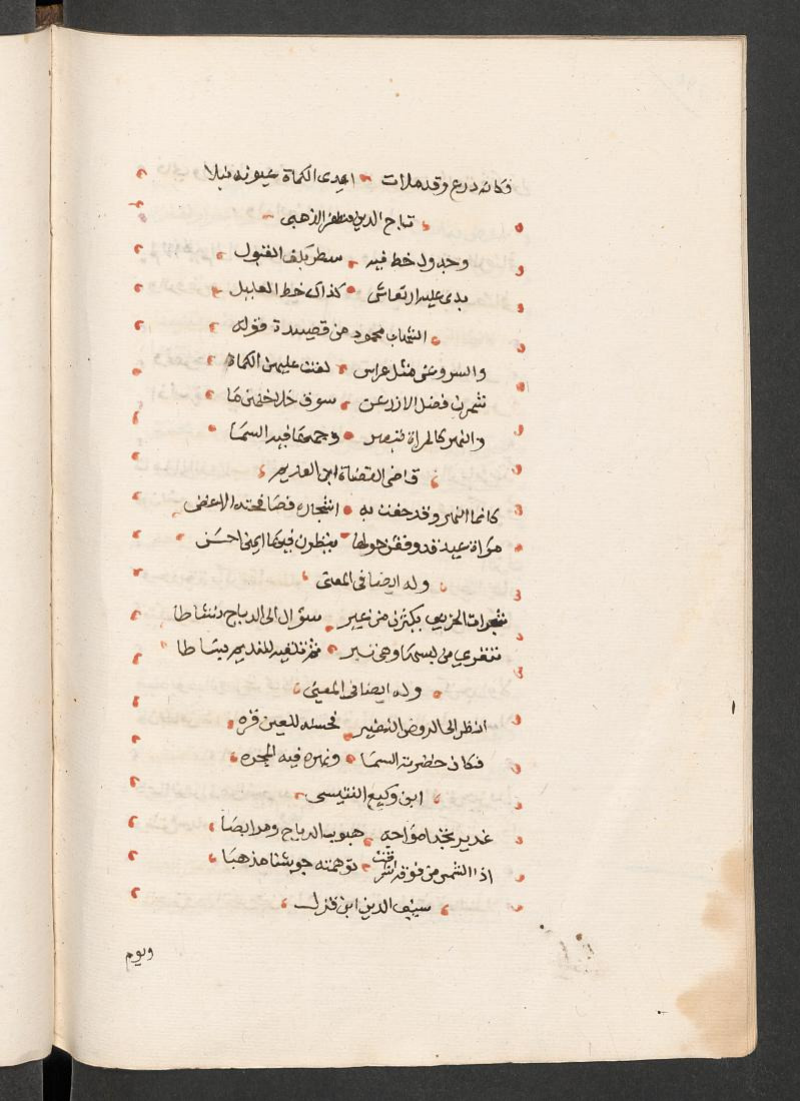 فكانه درع وقد ملات ايدى الكماة عيونه نبلا
تاج الدين مظفر الذهبى
وجدول خط فيه سطر بكف القبول
بدى عليه ارتعاش كذاك خط العليل
الشهاب محمود من قصيدة قوله
والسرو مثل عرايس لفت عليهن
شمرن فضل الازر عن سوق خلاخلهن ما
والنهر كالمراة تبصر وجهها فيه السما
قاضى القضاة ابن العديم
كانما النهر وقد حفت به اشجاره فصافحته الاغصن
مراة غيد قد وقفن حولها ينظرن فيها ايهن احسن
وله ايضا فى المعنى
شجرات الخريف يكثرن من غير سؤال الى الرياح نشاطا
تتعرى من لبسها وهى تبر ثم تلقيه للنديم بساطا
وله ايضا فى المعنى
انظر الى الروض النضير فحسنه للعين قره
فكان خضرته السما ونهره فيه المجره
ابن وكيع التنيسى
غدير يجعد امواجه هبوب الرياح ومر الصبا
اذا الشمس من فوقه اشرقت توهمته جوشنا مذهبا
سيف الدين ابن قزل
ويوم